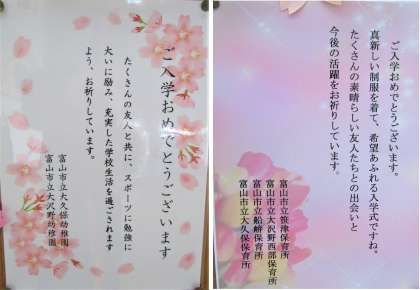 ご入学おめでとうございます
たくさんの友人と共に、スポーツに勉強に
大いに励み、充実した学校生活を過ごされます
よう、お祈りしています。
富山市立大久保幼稚園
富山市立大沢野幼稚園
ご入学おめでとうございます。
真新しい制服を着て、希望あふれる入学式ですね。
たくさんの素晴らしい友人たちとの出会いと
今後の活躍をお祈りしています。
富山市立笹津保育所
富山市立大沢野西部保育所
富山市立船峅保育所
富山市立大久保保育所